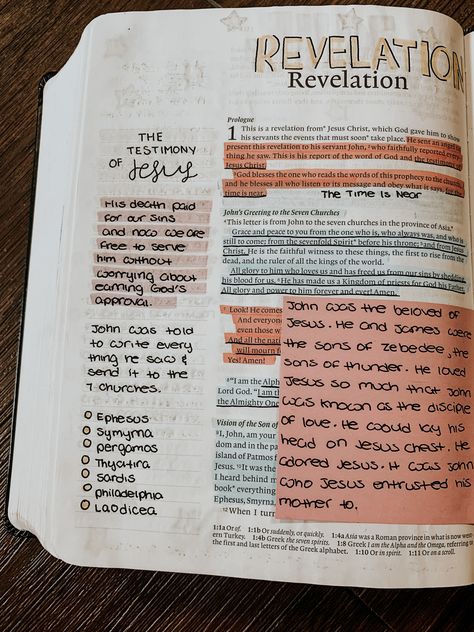 REVELATION
Revelation
THE
TESTIMONY
OF Jesus
HIS DEATH PAID
FOR OUR SINS
AND NOW WE ARE
FREE TO SERVE
HIM WITHOUT
WORRYING ABOUT
EARNING GOD'S
APPROVAL.
JOHN WAS TOLD
TO WRITE EVERY
THING HE SAW &
SEND IT TO THE
7 CHURCHES.
EPHESUS
SYMYRNA
PERGAMOS
THYATIRA
SARDIS
PHILADELPHIA
LAODICEA
Prologue
1 This is a revelation from* Jesus Christ, which God gave him to show
his servants the events that must soon* take place. He sent an angel to
present this revelation to his servant John, ²who faithfully reported every-
thing he saw. This is his report of the word of God and the testimony of
Jesus Christ.
³God blesses the one who reads the words of this prophecy to the church,
and he blesses all who listen to its message and obey what it says, for the
time is near.
The Time is Near
John's Greeting to the Seven Churches
⁴This letter is from John to the seven churches in the province of Asia.*
Grace and peace to you from the one who is, who always was, and who is
still to come; from the sevenfold Spirit* before his throne; ⁵and from Jesus
Christ. He is the faithful witness to these things, the first to rise from the
dead, and the ruler of all the kings of the world.
All glory to him who loves us and has freed us from our sins by shedding
his blood for us. ⁶He has made us a Kingdom of priests for God his Father.
All glory and power to him forever and ever! Amen.
⁷ Look! He comes
And everyone
even those w
And all the nati
will mourn f
Yes! Amen!
⁸"I am the Alph
Lord God. "I am t
the Almighty One
Vision of the Son of
⁹I, John, am your
and in the
island of Patmos f
Jesus. ¹⁰It was the
I heard behind m
book* everything
Smyrna,
¹²When I turn
JOHN WAS THE BELOVED OF
JESUS. HE AND JAMES WERE
THE SONS OF ZEBEDEE, THE
SONS OF THUNDER. HE LOVED
JESUS SO MUCH THAT JOHN
WAS KNOWN AS THE DISCIPLE
OF LOVE. HE WOULD LAY HIS
HEAD ON JESUS CHEST. HE
ADORED JESUS. IT WAS JOHN
WHO JESUS ENTRUSTED HIS
MOTHER TO.
1:1a Or of. 1:1b Or suddenly, or quickly. 1:4a Asia was a Roman province in what is now west-
ern Turkey. 1:4b Greek the seven spirits. 1:8 Greek I am the Alpha and the Omega, referring to
the first and last letters of the Greek alphabet. 1:10 Or in spirit. 1:11 Or on a scroll.